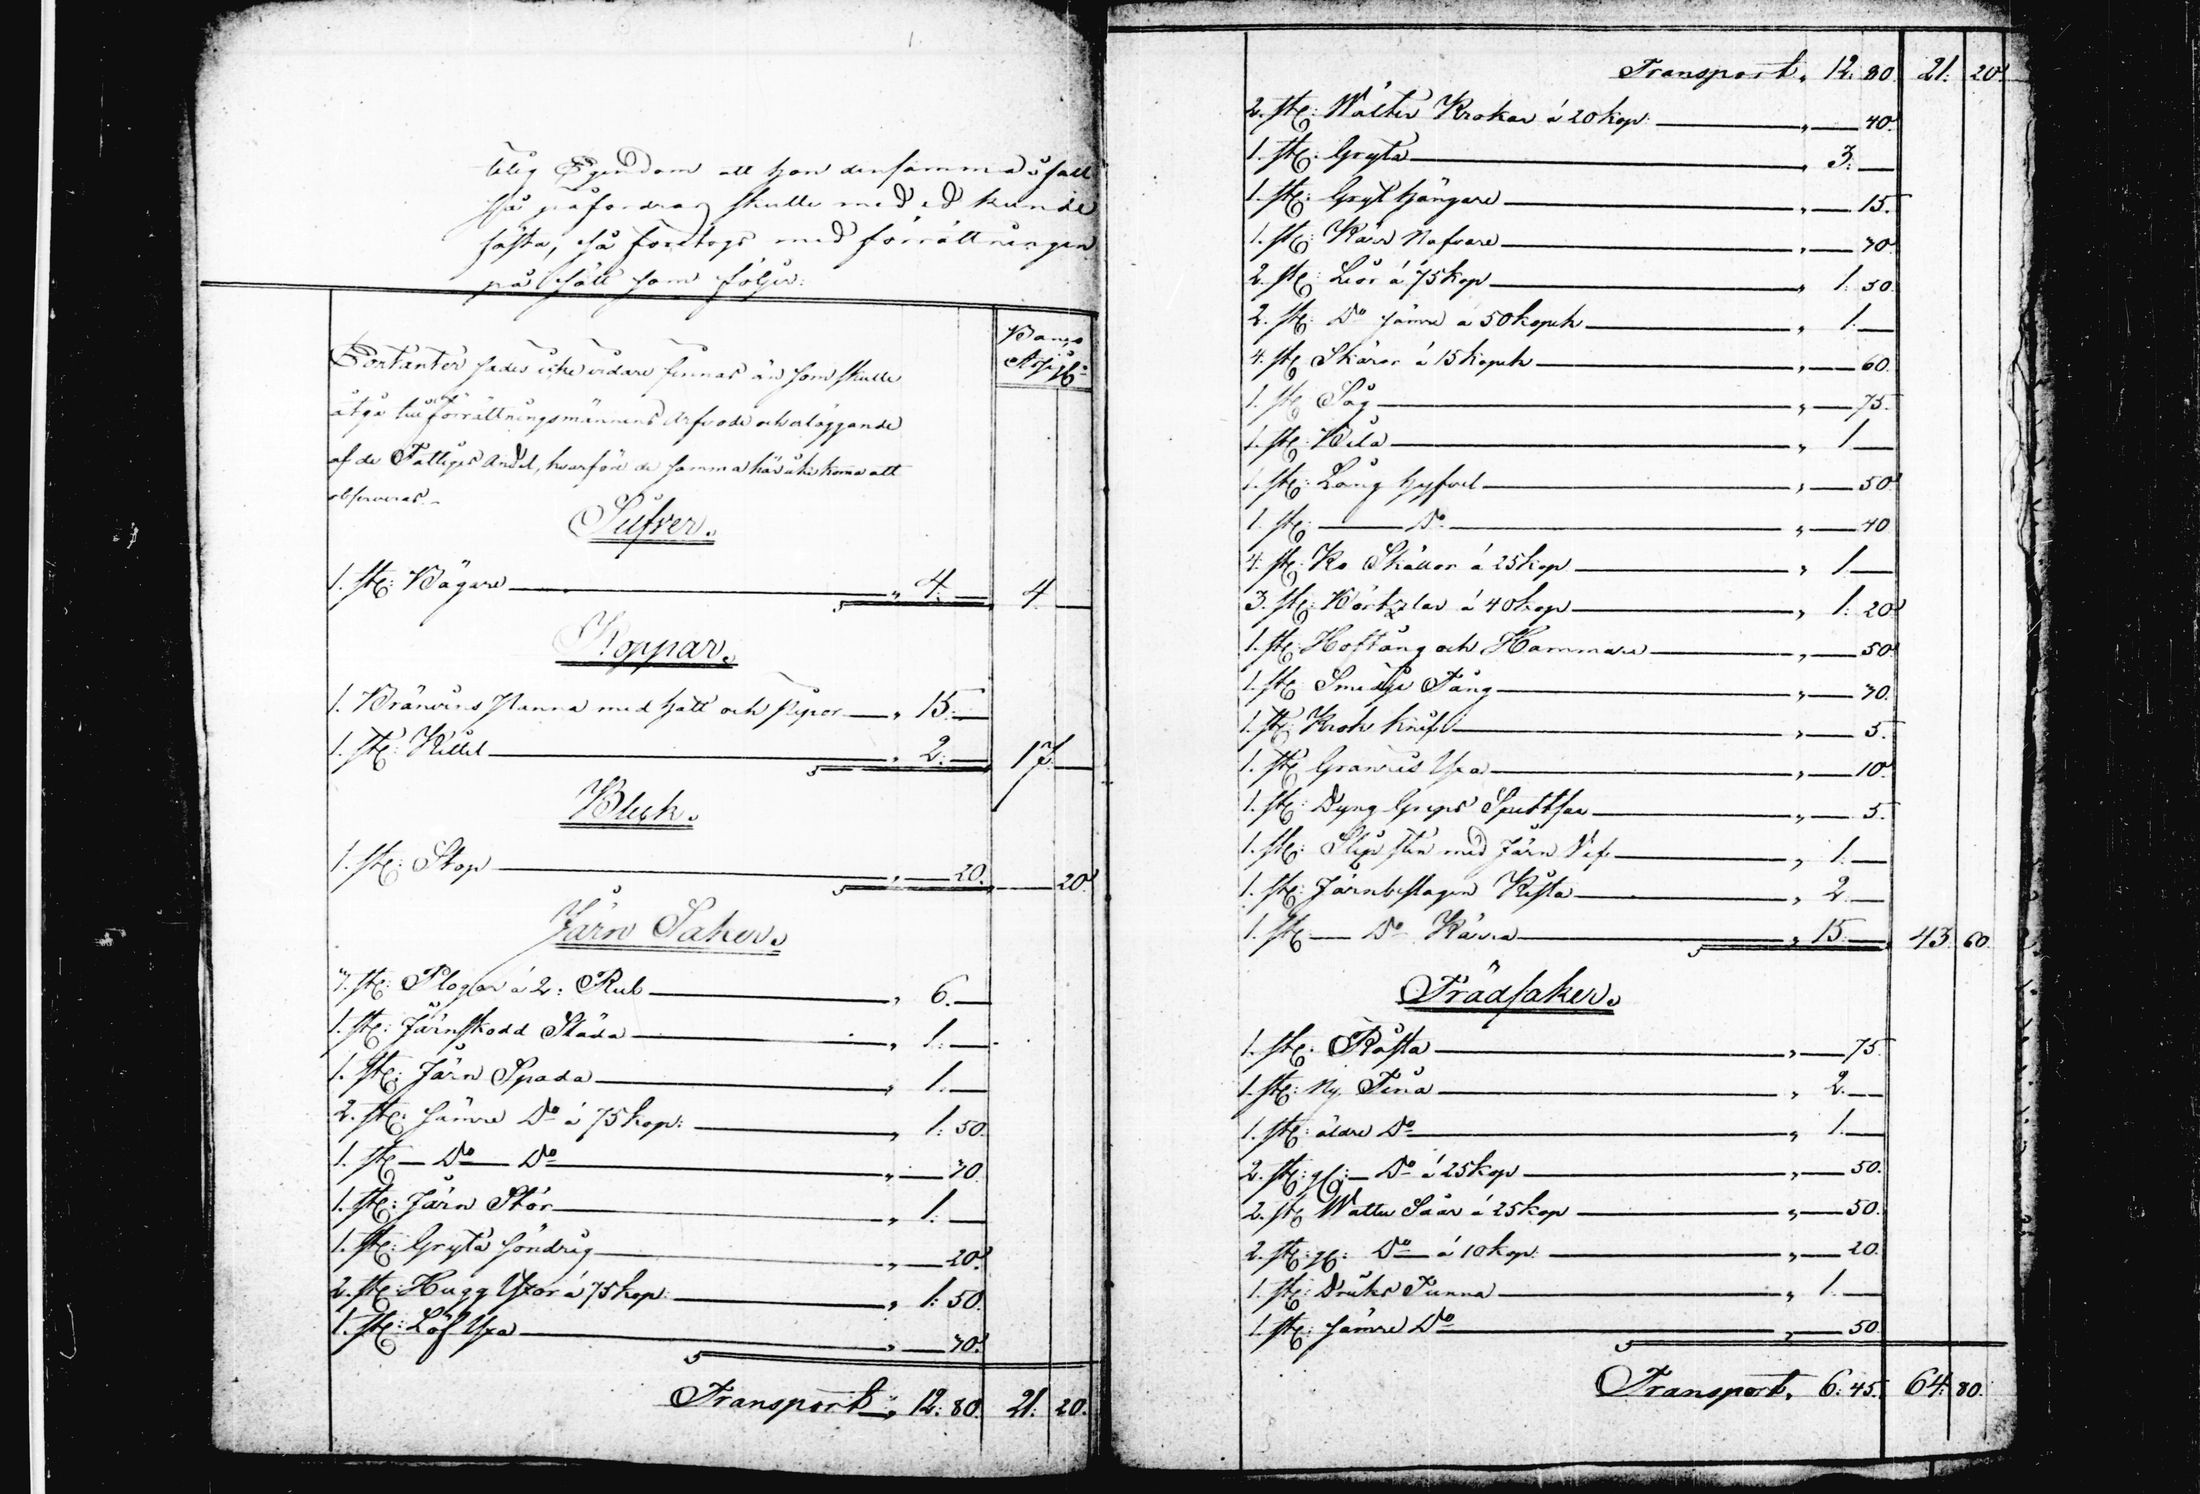 1.
telig Egendom att hon densamma i fall
så påfordras skulle med ed kunde
fästa, så företogs med förrättningen
på sätt som följer:
Banco Assig:
Contanter sades icke vidare finnas än som skulle
åtgå till förrättningsmännens arfvode och erläggande
af de Fattigas Andel, hvarföre de samma här icke komma att
observeras.
Silfver.
1. st: Bägare " 4. — 4 —
Koppar.
1. Bränvins Panna med hatt och pipor " 15. —
1. st: Kittel " 2. — 17. —
Bleck.
1. st: Stop " — 20. — 20.
Järn Saker.
3. st: Plogar à 2: Rub " 6. —
1. st: Järnskodd Släda " 1. —
1. st: Järn Spada " 1. —
2. st: sämre Do à 75 kop: " 1: 50.
1. st — Do — Do " — 70.
1. st: Järn Stör " 1: —
1. st: Gryta söndrig " — 20.
2. st: Hugg Yxor à 75 kop: " 1: 50.
1. st: Löf Yxa " — 70.
Transport " 12: 80. 21: 20.
Transport " 12: 80. 21: 20.
2. st: Wälter Krokar à 20 kop: " — 40.
1. st: Gryta " 3: —
1. st: Gryt hängare " — 15.
1. st: Kärr Nafvare " — 70.
2. st: Liar à 75 kop " 1: 50.
2. st: Do sämre à 50 kopek " 1: —
4. st: Skäror à 15 kopek " — 60.
1. st: Såg " — 75.
1. st: Bila " 1 —
1. st: Lång hyfvel " — 50.
1. st: — Do " — 40
4. st: Ko Skällor à 25 kop " 1. —
3. st: à 40 kop " 1: 20.
1. st: Hoftång och Hammare " — 50.
1. st: Smedje Tång " — 70.
1. st: Krok knif " — 5.
1. st: Granris Yxa " — 10.
1. st: Dyng Greps " — 5.
1. st: Slip sten med Järn Vef " 1: —
1. st: Järnbeslagen Kista " 2. —
1. st: — Do Kärra " 15. — 43. 60.
Trädsaker.
1. st: Rosta " — 75.
1. st: Ny Tina " 2. —
1. st: äldre Do " 1. —
2. st: gl: — Do à 25 kop " — 50.
2. st: Wattu Såar à 25 kop " — 50.
2. st: gl: Do à 10 kop: " — 20.
1. st: Dricks Tunna " 1. —
1. st: sämre Do " — 50.
Transport " 6: 45. 64: 80.